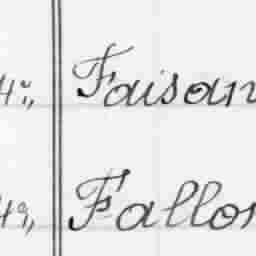 4°,, Faisan
4°,, Fallon